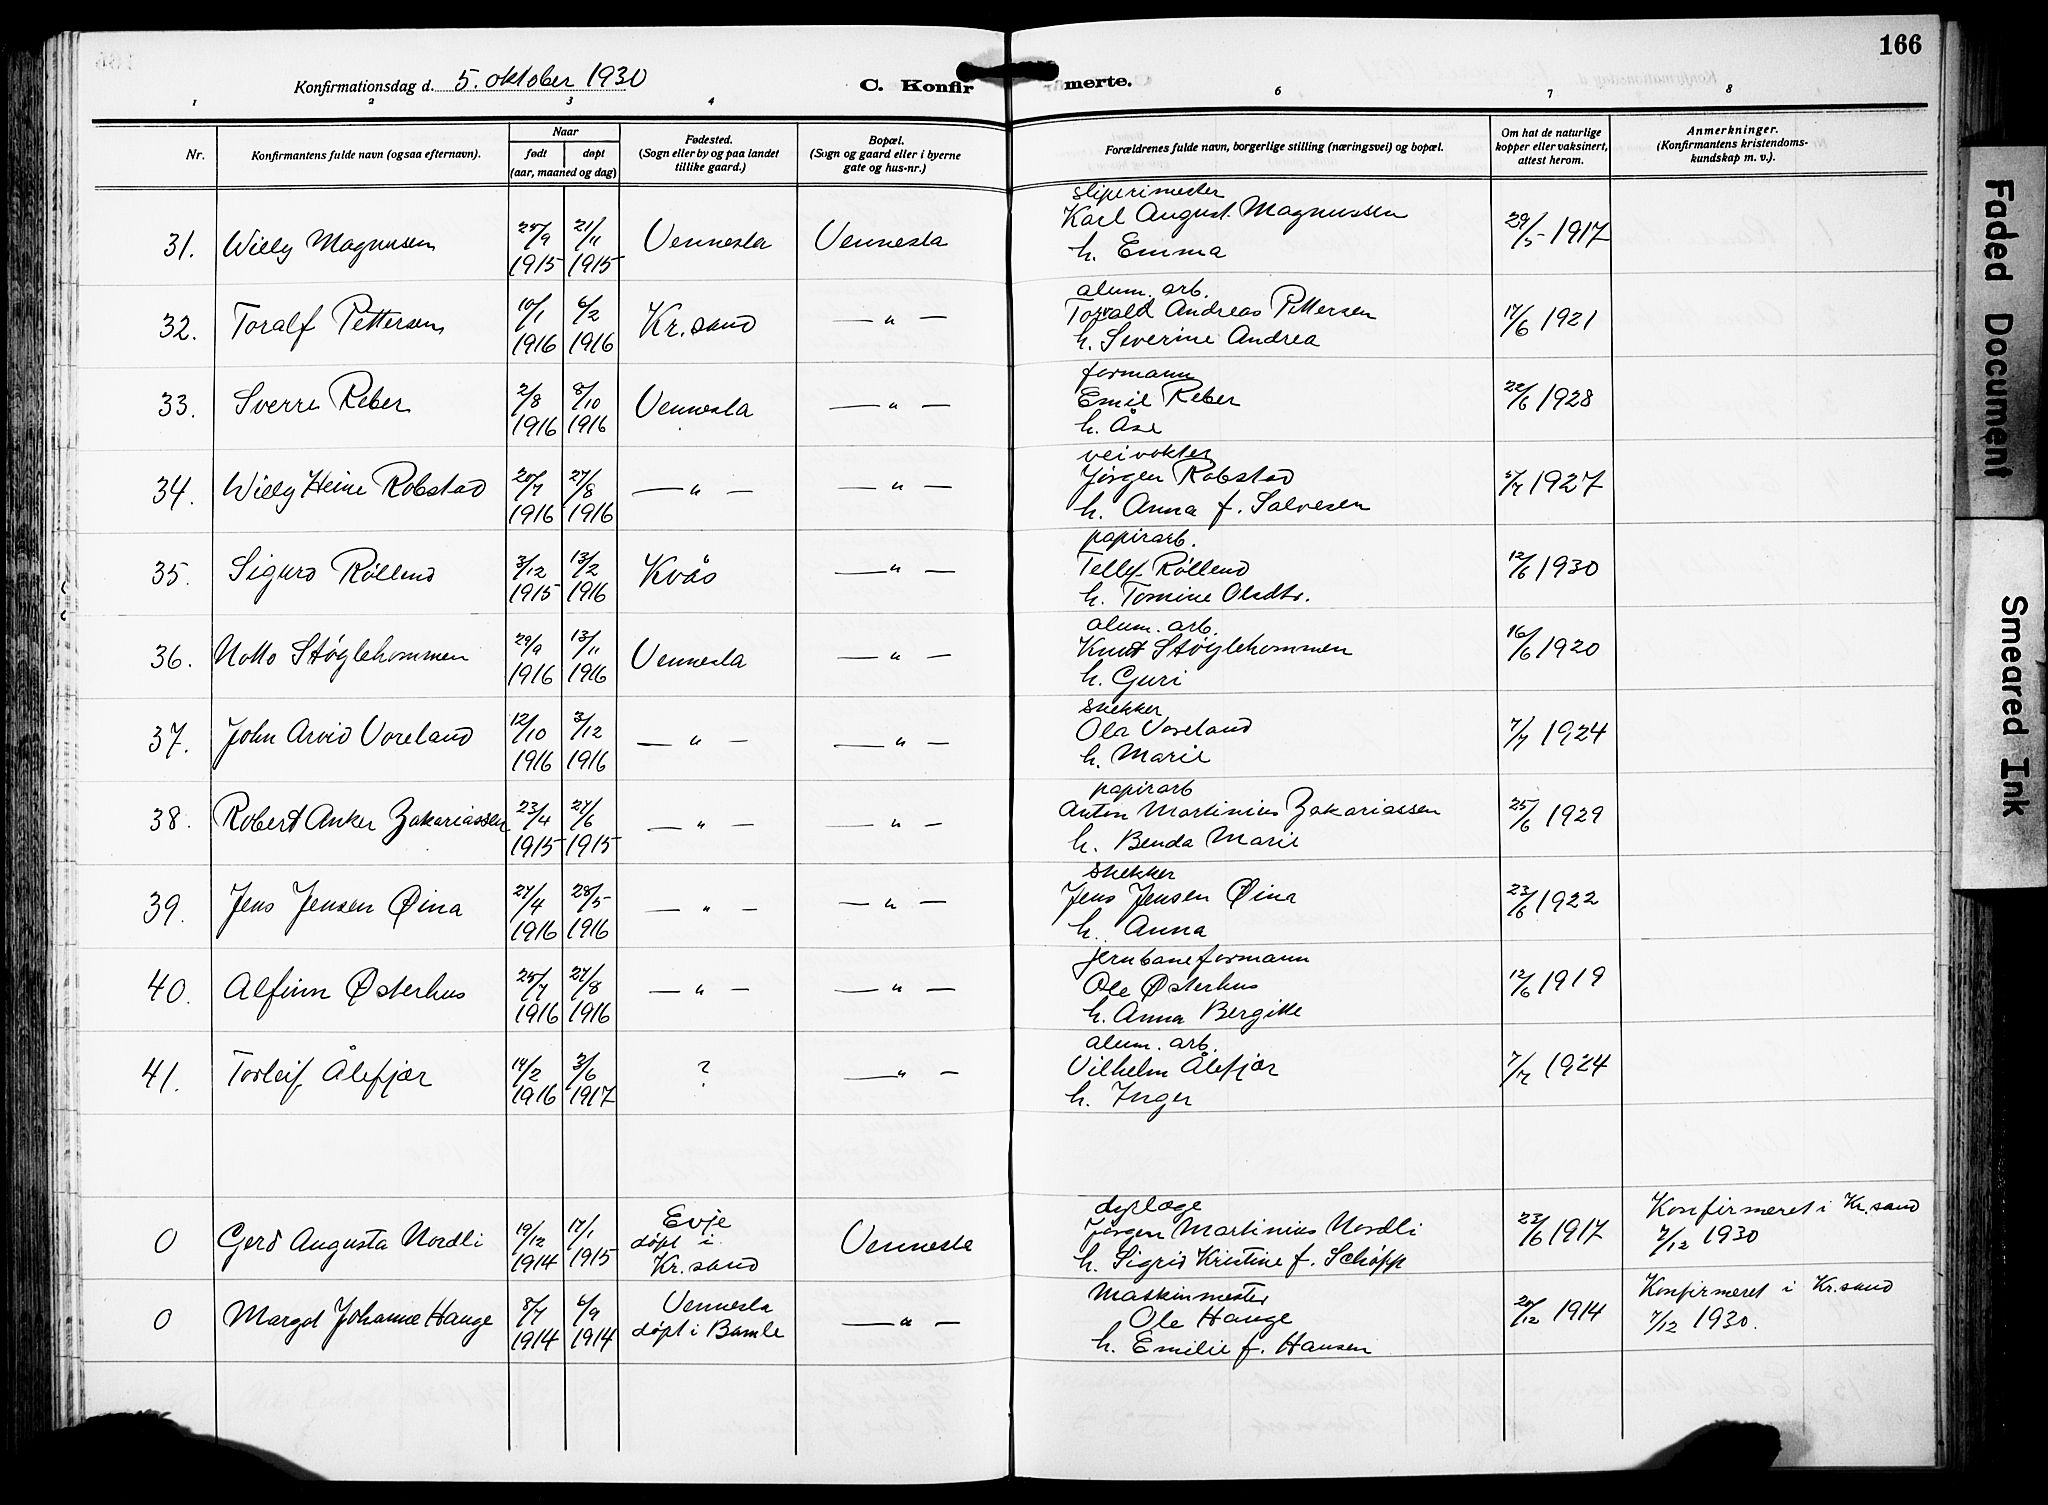 166
Konfirmationsdag d. 5. oktober 1930
C. Konfirmerte.
1 2 3 4 5 6 7 8
Nr. Konfirmantens fulde navn (ogsaa efternavn). Naar født døpt (aar, maaned og dag) Fødested. (Sogn eller by og paa landet tillike gaard.) Bopæl. (Sogn og gaard eller i byerne gate og hus-nr.) Forældrenes fulde navn, borgerlige stilling (næringsvei) og bopæl. Om hat de naturlige kopper eller vaksinert, attest herom. Anmerkninger. (Konfirmantens kristendoms-kundskap m. v.).
sliperimester
31. Willy Magnusen 25/9 1915 21/11 1915 Vennesla Vennesla Karl August Magnussen 29/5 1917
h. Emma
alum. arb.
32. Toralf Pettersen 10/1 1916 6/2 1916 Kr.sand — " — Torvald Andreas Pettersen 17/6 1921
h. Severine Andrea
formann
33. Sverre Reber 2/8 1916 8/10 1916 Vennesla — " — Emil Reber 22/6 1928
h. Åse
veivokter
34. Willy Heine Robstad 20/7 1916 27/8 1916 — " — — " — Jørgen Robstad 5/7 1927
h. Anna f. Salvesen
papirarb.
35. Sigurd Røllend 3/12 1915 13/2 1916 Kvås — " — Tellef Røllend 12/6 1930
h. Tomine Olsdtr.
alum. arb.
36. Notto Støylehommen 29/9 1916 13/11 1916 Vennesla — " — Knut Støylehommen 16/6 1920
h. Guri
snekker
37. John Arvid Voreland 12/10 1916 3/12 1916 — " — — " — Ola Voreland 7/7 1924
h. Marie
papirarb
38. Robert Anker Zakariassen 23/4 1915 27/6 1915 — " — — " — Anton Martinius Zakariassen 25/6 1929
h. Benda Marie
snekker
39. Jens Jensen Øina 27/4 1916 28/5 1916 — " — — " — Jens Jensen Øina 23/6 1922
h. Anna
jernbaneformann
40. Alfinn Østerhus 25/7 1916 27/8 1916 — " — — " — Ole Østerhus 12/6 1919
h. Anna Bergitte
alum. arb.
41. Torleif Ålefjær 14/2 1916 3/6 1917 ? — " — Vilhelm Ålefjær 7/7 1924
h. Inger
dyrlæge
0 Gerd Augusta Nordli 19/12 1914 17/1 1915 Evje døpt i Kr.sand Vennesla Jørgen Martinius Nordli 23/6 1917 Konfirmeret i Kr.sand 7/12 1930
h. Sigrid Kristine f. Schøpp
Maskinmester
0 Margot Johanne Hauge 8/7 1914 6/9 1914 Vennesla døpt i Bamle — " — Ole Hauge 20/12 1914 Konfirmeret i Kr.sand 7/12 1930.
h. Emilie f. Hansen
Faded Document
Smeared Ink